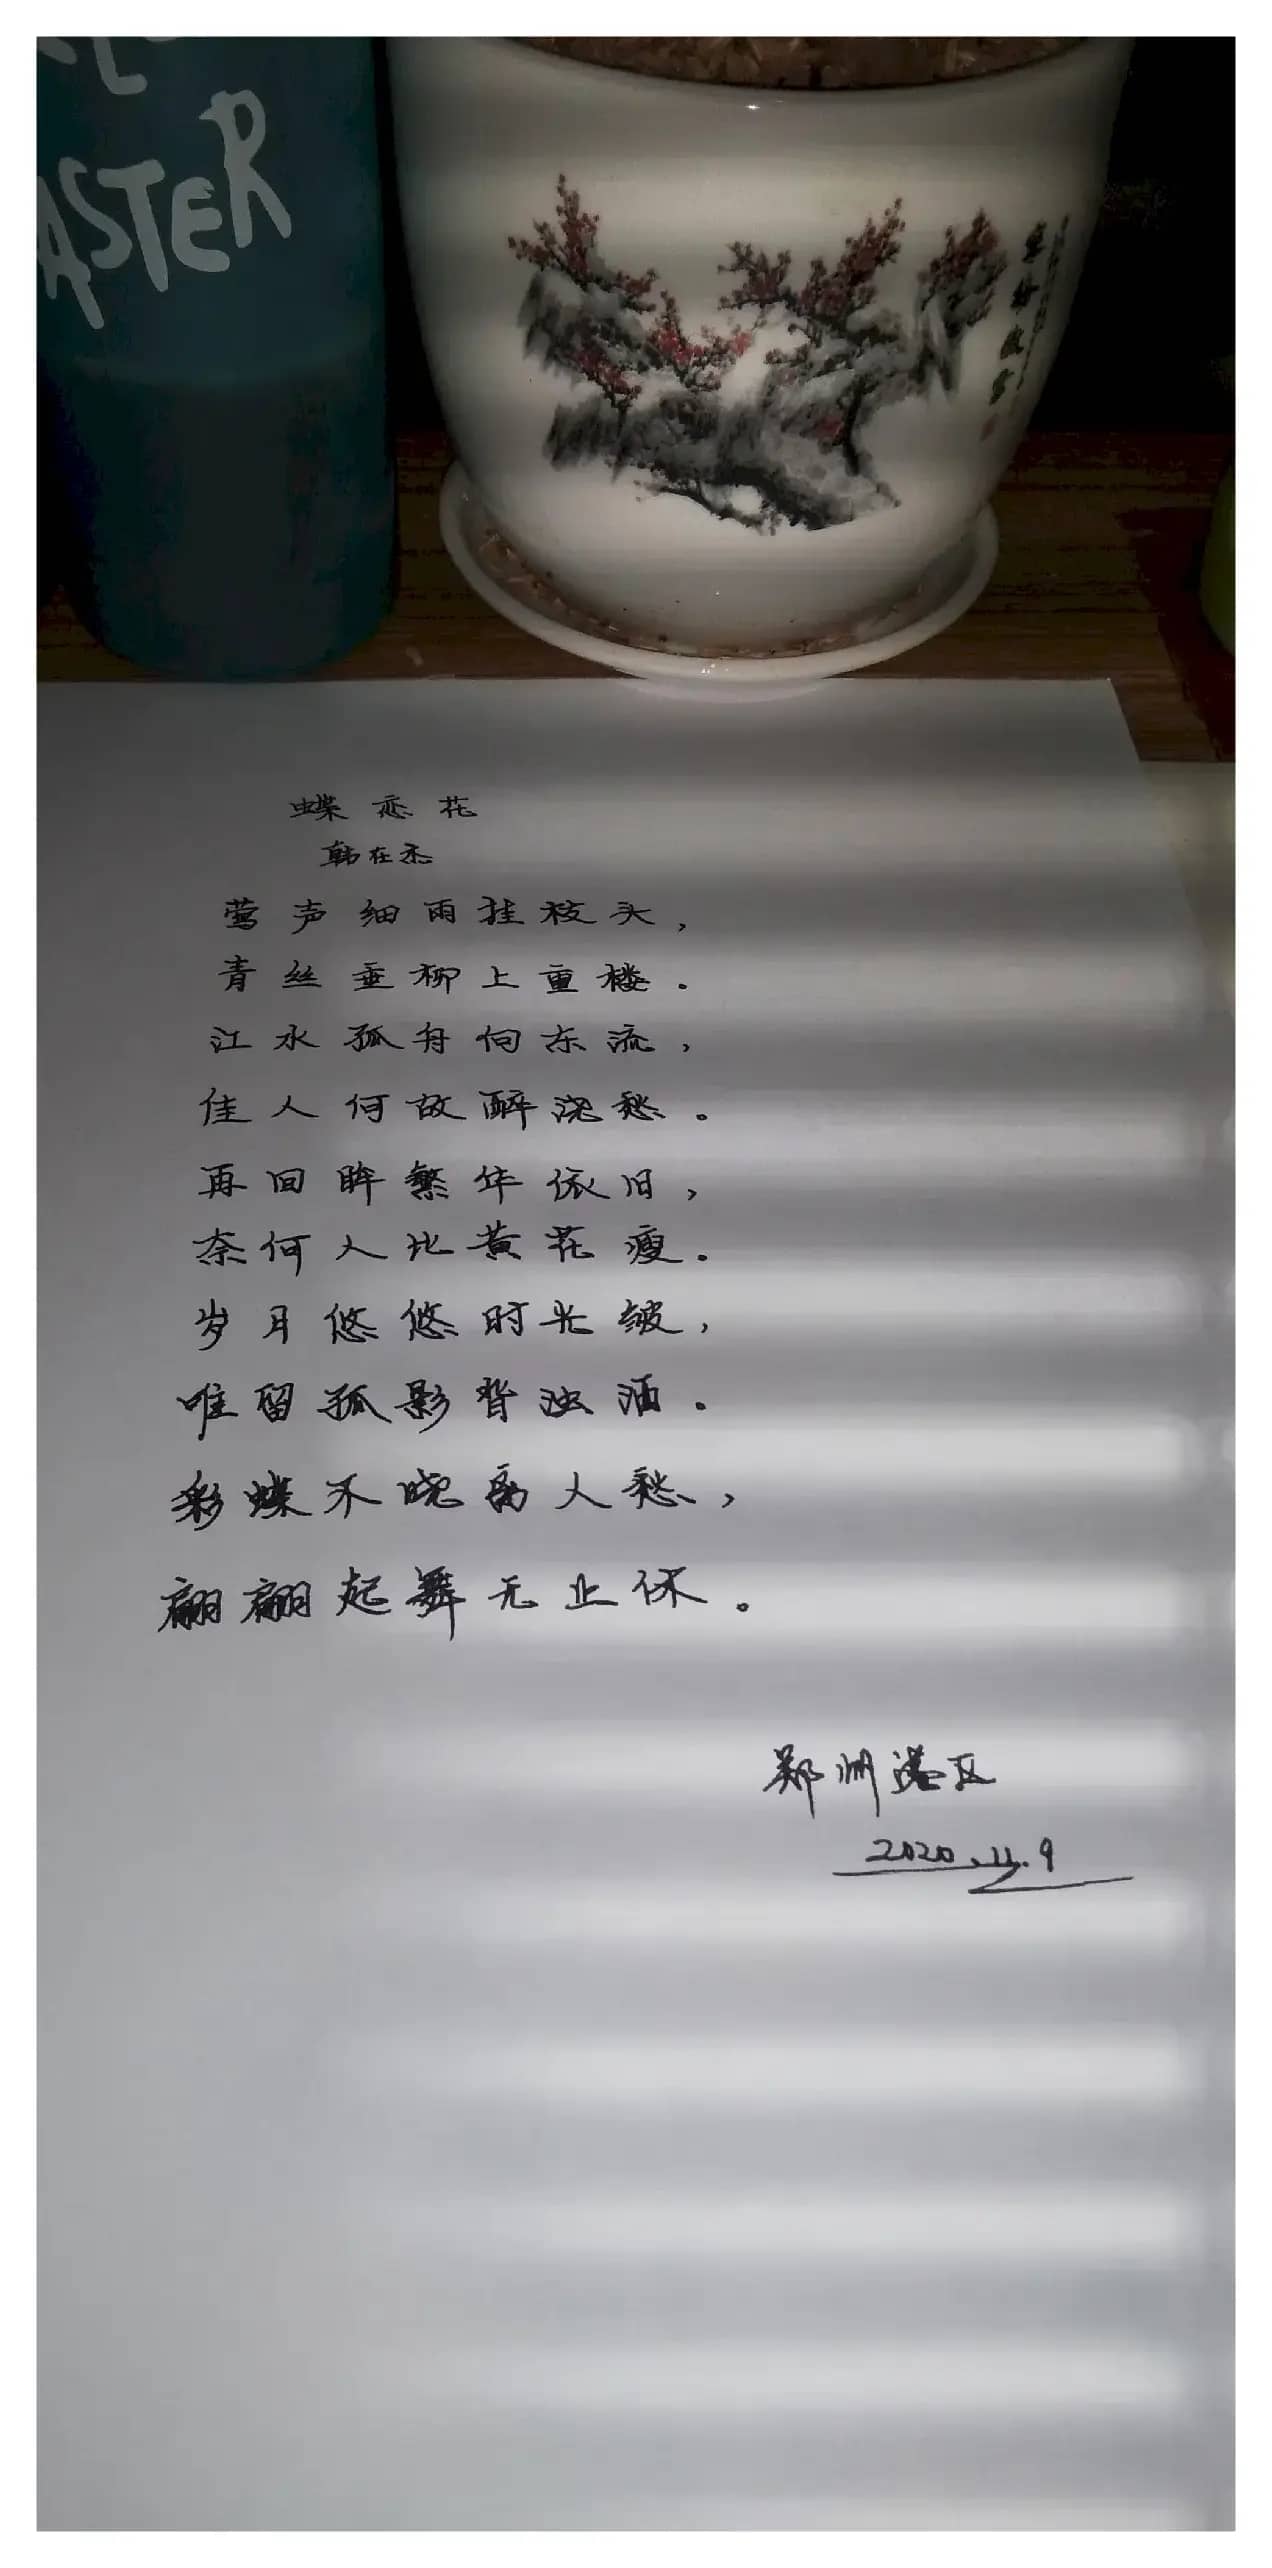 ASTER
蝶恋花
韩在杰
莺声细雨挂枝头,
青丝垂柳上重楼.
江水孤舟向东流,
佳人何故醉浇愁。
再回眸繁华依旧,
奈何人比黄花瘦.
岁月悠悠时光皱,
唯留孤影背浊酒.
彩蝶不晓离人愁,
翩翩起舞无止休。
郑州港区
2020.11.9